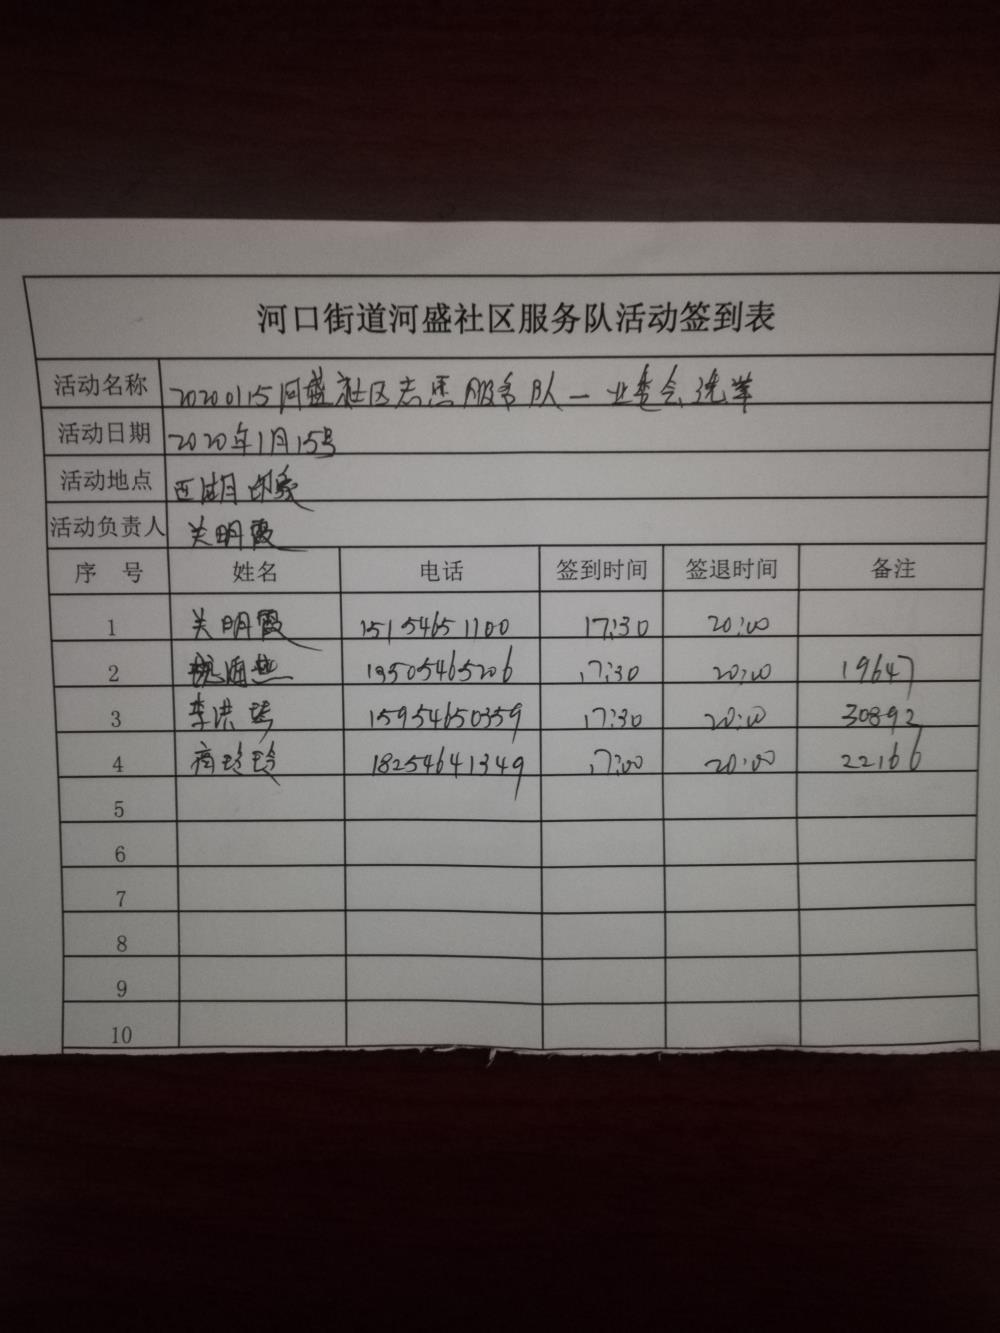 河口街道河盛社区服务队活动签到表
活动名称 20200115河盛社区志愿服务队一业委会选举
活动日期 2020年1月15号
活动地点 西湖印象
活动负责人 关明霞
序 号 姓名 电话 签到时间 签退时间 备注
1 关明霞 15154651100 17:30 20:00
2 13505465206 17:30 20:00 19647
3 李洪琴 15954650359 17:30 20:00 30892
4 玲玲 18254641349 17:00 20:00 22166
5
6
7
8
9
10